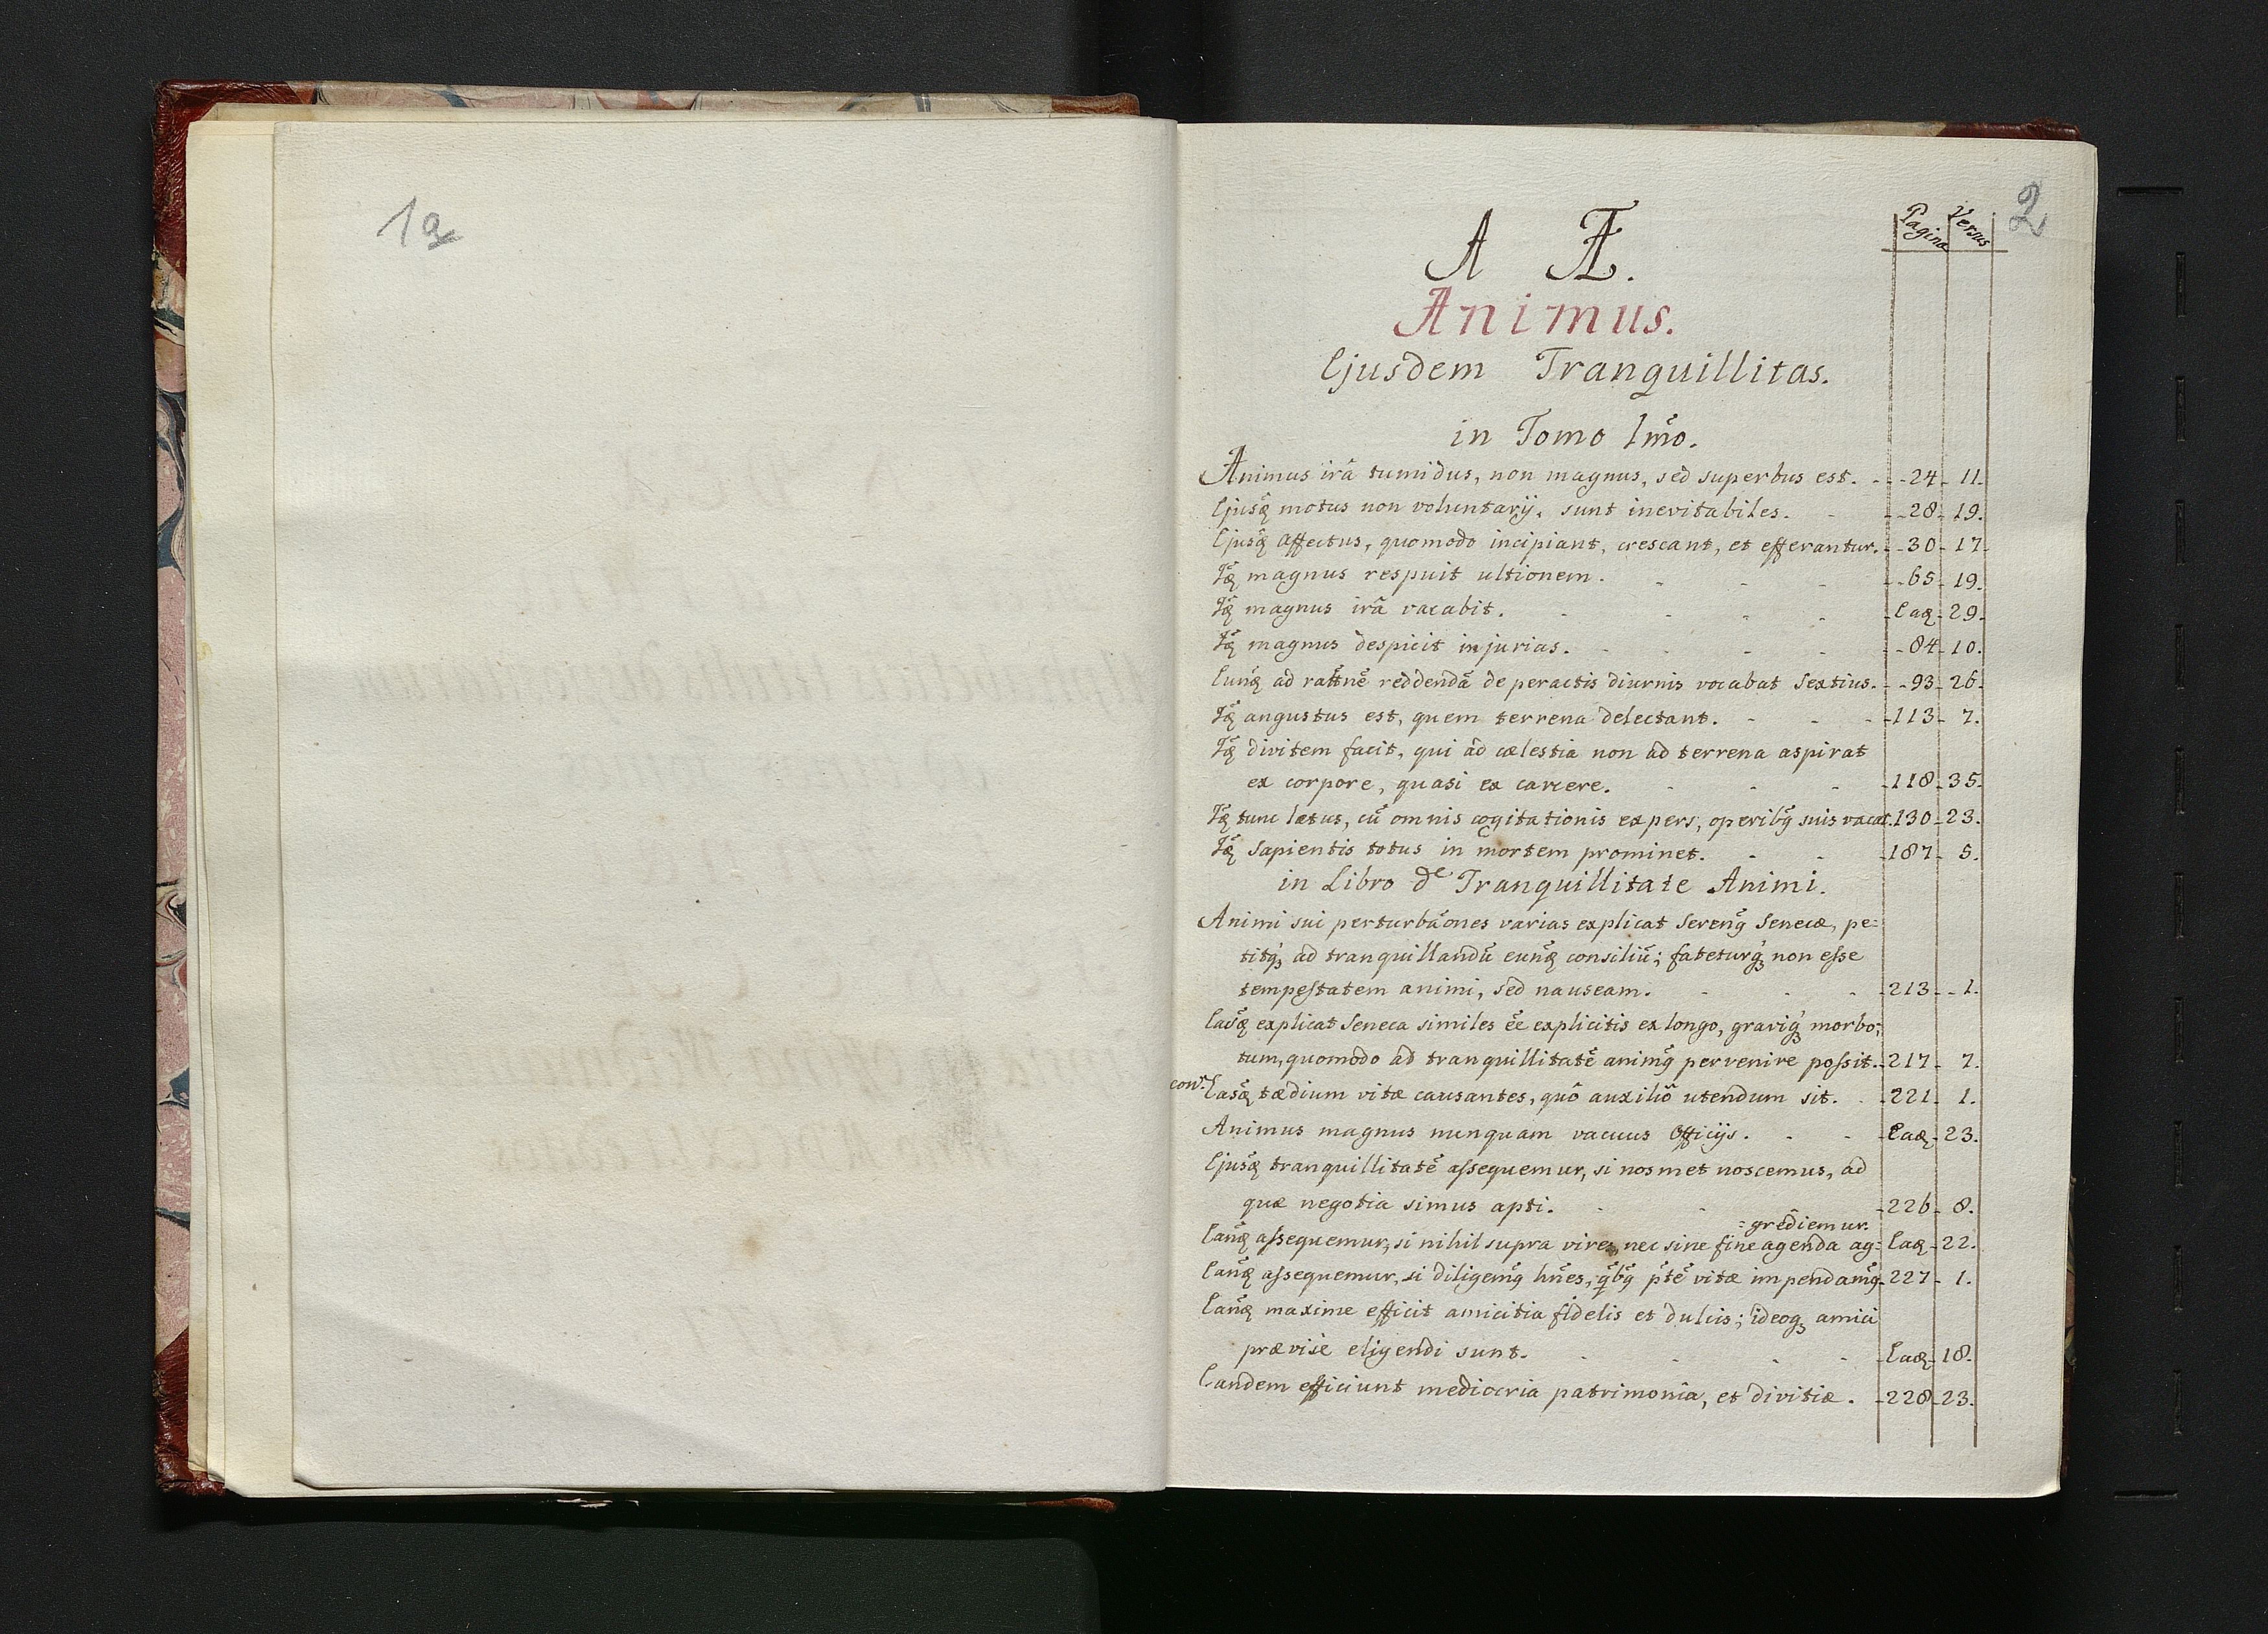 1a
2
Pagina Versus
A Æ.
Animus.
Ejusdem Tranquillitas.
in Tomo 1mo.
Animus irâ tumidus, non magnus, sed superbus est. - - 24 - 11.
Ejusq motus non voluntarij, sunt inevitabiles. - - - 28 - 19.
Ejusq affectus, quomodo incipiant, crescant, et efferantur. - - 30 - 17.
Iq magnus respuit ultionem. - - - - - 65 - 19.
Iq magnus irâ vacabit. - - - - - Eaq - 29.
Iq magnus despicit injurias. - - - - - 84 - 10.
Eunq ad rattnē reddendā de peractis diurnis vocabat Sextius. - - 93 - 26.
Iq angustus est, quem terrena delectant. - - - 113 - 7.
Iq divitem facit, qui ad cælestia non ad terrena aspirat
ex corpore, quasi ex carcere. - - - - 118 - 35.
Iq tunc lætus, cū omnis cogitationis expers, operibq suis vacat. 130 - 23.
Iq Sapientis totus in mortem prominet. - - - 187 - 5.
in Libro de Tranquillitate Animi.
Animi sui perturbāones varias explicat Serenq Senecæ, pe=
titq, ad tranquillandū eunq consiliū; fateturq, non eſse
tempeſtatem animi, sed nauseam. - - - - 213 - - 1.
Easq explicat Seneca similes ēe explicitis ex longo, graviq, morbo;
tum, quomodo ad tranquillitatē animq pervenire poſsit. - 217 - 7.
con. Easq tædium vitæ causantes, quô auxiliô utendum sit. - - 221 - 1.
Animus magnus nunquam vacuus Officijs. - - - Eaq - 23.
Ejusq tranquillitatē aſsequemur, si nosmet noscemus, ad
quæ negotia simus apti. - - - 226 - 8.
=grediemur.
Eanq aſsequemur, si nihil supra vires, nec sine fine agenda ag= Eaq - 22.
Eanq aſsequemur, si diligemq hnēs, qbq ptē vitæ impendamq - 227 - 1.
Eanq maxime efficit amicitia fidelis et dulcis; ideoq, amici
prævise eligendi sunt. - - - - - Eaq - 18.
Eandem efficiunt mediocria patrimonia, et divitiæ. - 228 - 23.